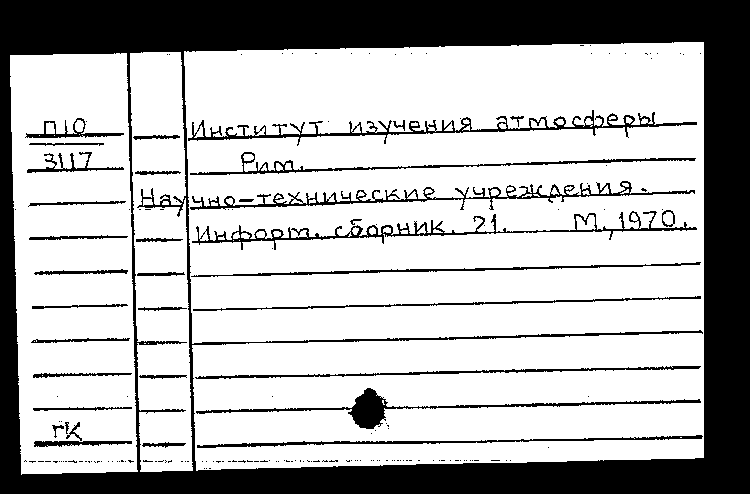 П10
3117
Институт изучения атмосферы
Рим.
Научно-технические учреждения.
Информ. сборник. 21. М., 1970.
гК